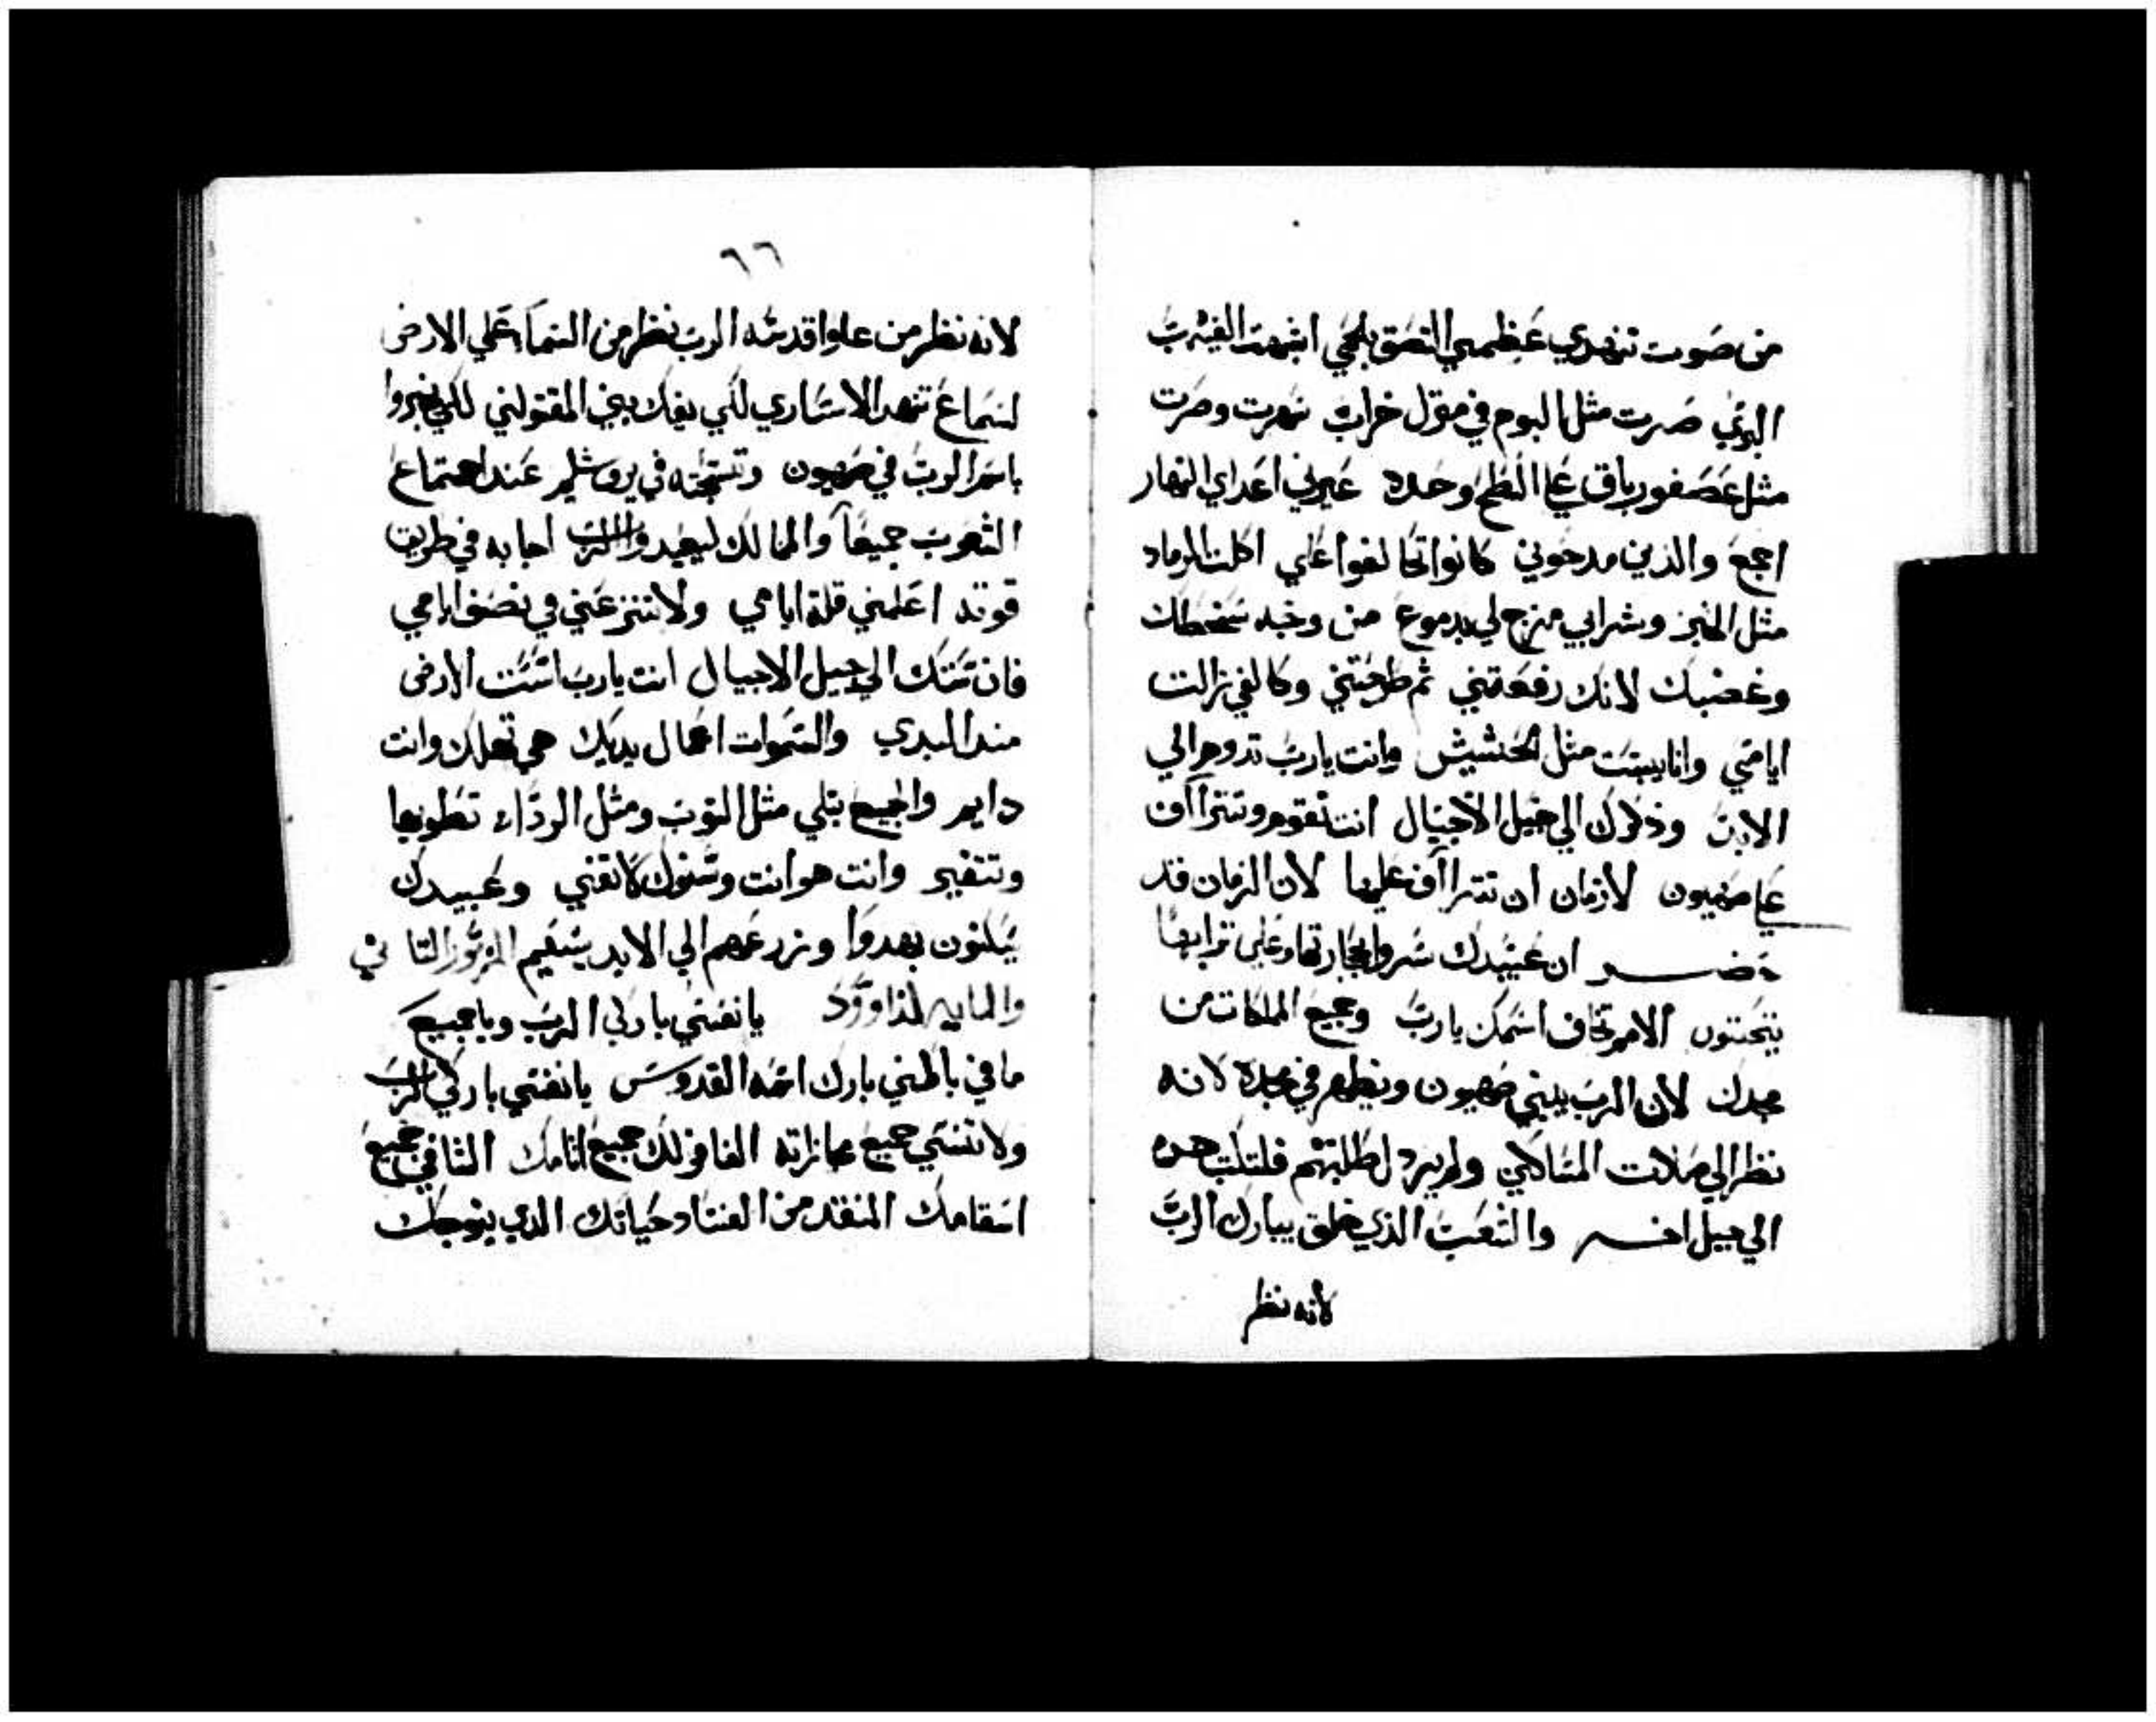 من صوت تنهدي عظمي التصق بلحمي اشبهت القيرب
البري صرت مثل البوم في موقل خرابه سهرت وصرت
مثل عصفور باق علي السطح وحده عيروني اعداي النهار
اجمع والذين مدحوني كانوا تحالفوا علي اكلت الرماد
مثل الخبز وشرابي مزج لي بدموع من وجه سخطك
وغضبك لانك رفعتني ثم طرحتني وكالفي زالت
ايامي وانا يبست مثل الحشيش وانت يارب تدوم الي
الابد وذكرك الي جيل الاجيال انت تقوم وتتراآف
علي صهيون لازمان ان تتراآف عليها لان الزمان قد
حضر ان عبيدك سروا بحجارتها وعلي ترابها
يتحننون الامم تخاف اسمك يارب وجميع الملكات من
مجدك لان الرب يبني صهيون ويظهر في مجده لانه
نظر الي صلات المساكين ولم يرد لطلبتهم فلتكتب هده
الي جيل اخر والشعب الذي يخلق يبارك الرب
لانه نظر
٦٦
لانه نظر من علوا قدسه الرب نظر من السماء علي الارض
لسماع تنهد الاساري لكي يفك بني المقتولين لكي يخبروا
باسم الرب في صهيون وتسبحته في يروشليم عند اجتماع
الشعوب جميعاً والممالك ليعبدوا الرب اجابه في طريق
قوته اعلمني قلة ايامي ولا تنزعني في نصف ايامي
فان سنك الي جيل الاجيال انت يارب اسست الارض
مند البدي والسموات اعمال يديك هي تهلك وانت
دايم والجميع يبلي مثل التوب ومثل الرداء تطويها
وتتغير وانت هو انت وسنوك لا تفني وعبيدك
يسكنون بهدوا وزرعهم الي الابد يستقيم المزمور التاني
والمايه لداوود يا نفسي باركي الرب ويا جميع
ما في باطني بارك اسمه القدوس يا نفسي باركي الرب
ولا تنسي جميع مجازاته الغافر لك جميع اتامك الشافي جميع
اسقامك المنقد من الفساد حياتك الدي يتوجك